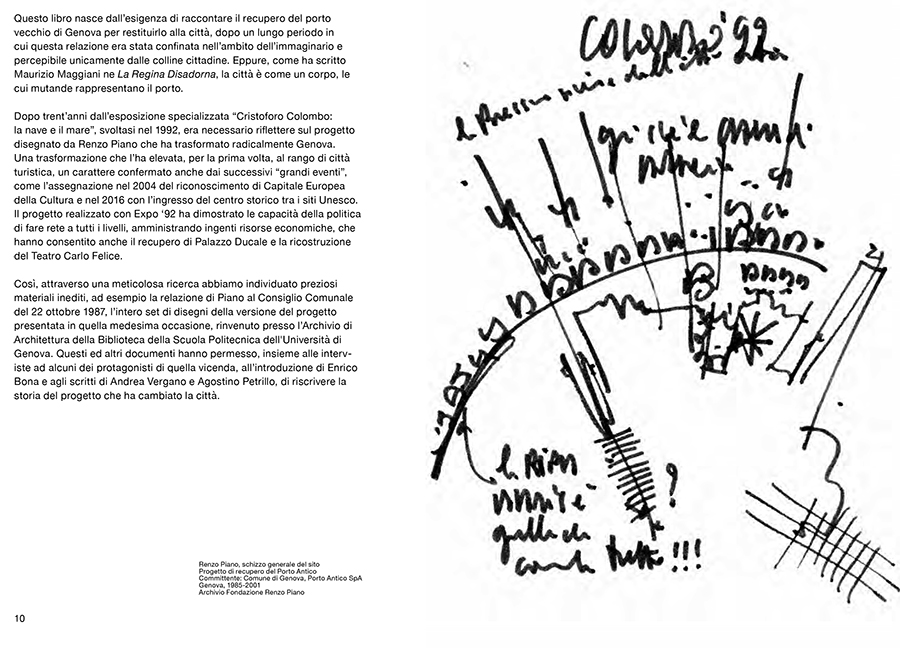 Questo libro nasce dall’esigenza di raccontare il recupero del porto
vecchio di Genova per restituirlo alla città, dopo un lungo periodo in
cui questa relazione era stata confinata nell’ambito dell’immaginario e
percepibile unicamente dalle colline cittadine. Eppure, come ha scritto
Maurizio Maggiani ne La Regina Disadorna, la città è come un corpo, le
cui mutande rappresentano il porto.
Dopo trent’anni dall’esposizione specializzata “Cristoforo Colombo:
la nave e il mare”, svoltasi nel 1992, era necessario riflettere sul progetto
disegnato da Renzo Piano che ha trasformato radicalmente Genova.
Una trasformazione che l’ha elevata, per la prima volta, al rango di città
turistica, un carattere confermato anche dai successivi “grandi eventi”,
come l’assegnazione nel 2004 del riconoscimento di Capitale Europea
della Cultura e nel 2016 con l’ingresso del centro storico tra i siti Unesco.
Il progetto realizzato con Expo ‘92 ha dimostrato le capacità della politica
di fare rete a tutti i livelli, amministrando ingenti risorse economiche, che
hanno consentito anche il recupero di Palazzo Ducale e la ricostruzione
del Teatro Carlo Felice.
Così, attraverso una meticolosa ricerca abbiamo individuato preziosi
materiali inediti, ad esempio la relazione di Piano al Consiglio Comunale
del 22 ottobre 1987, l’intero set di disegni della versione del progetto
presentata in quella medesima occasione, rinvenuto presso l’Archivio di
Architettura della Biblioteca della Scuola Politecnica dell’Università di
Genova. Questi ed altri documenti hanno permesso, insieme alle interv-
iste ad alcuni dei protagonisti di quella vicenda, all’introduzione di Enrico
Bona e agli scritti di Andrea Vergano e Agostino Petrillo, di riscrivere la
storia del progetto che ha cambiato la città.
Renzo Piano, schizzo generale del sito
Progetto di recupero del Porto Antico
Committente: Comune di Genova, Porto Antico SpA
Genova, 1985-2001
Archivio Fondazione Renzo Piano
10
Colombo '92
?
tutto !!!